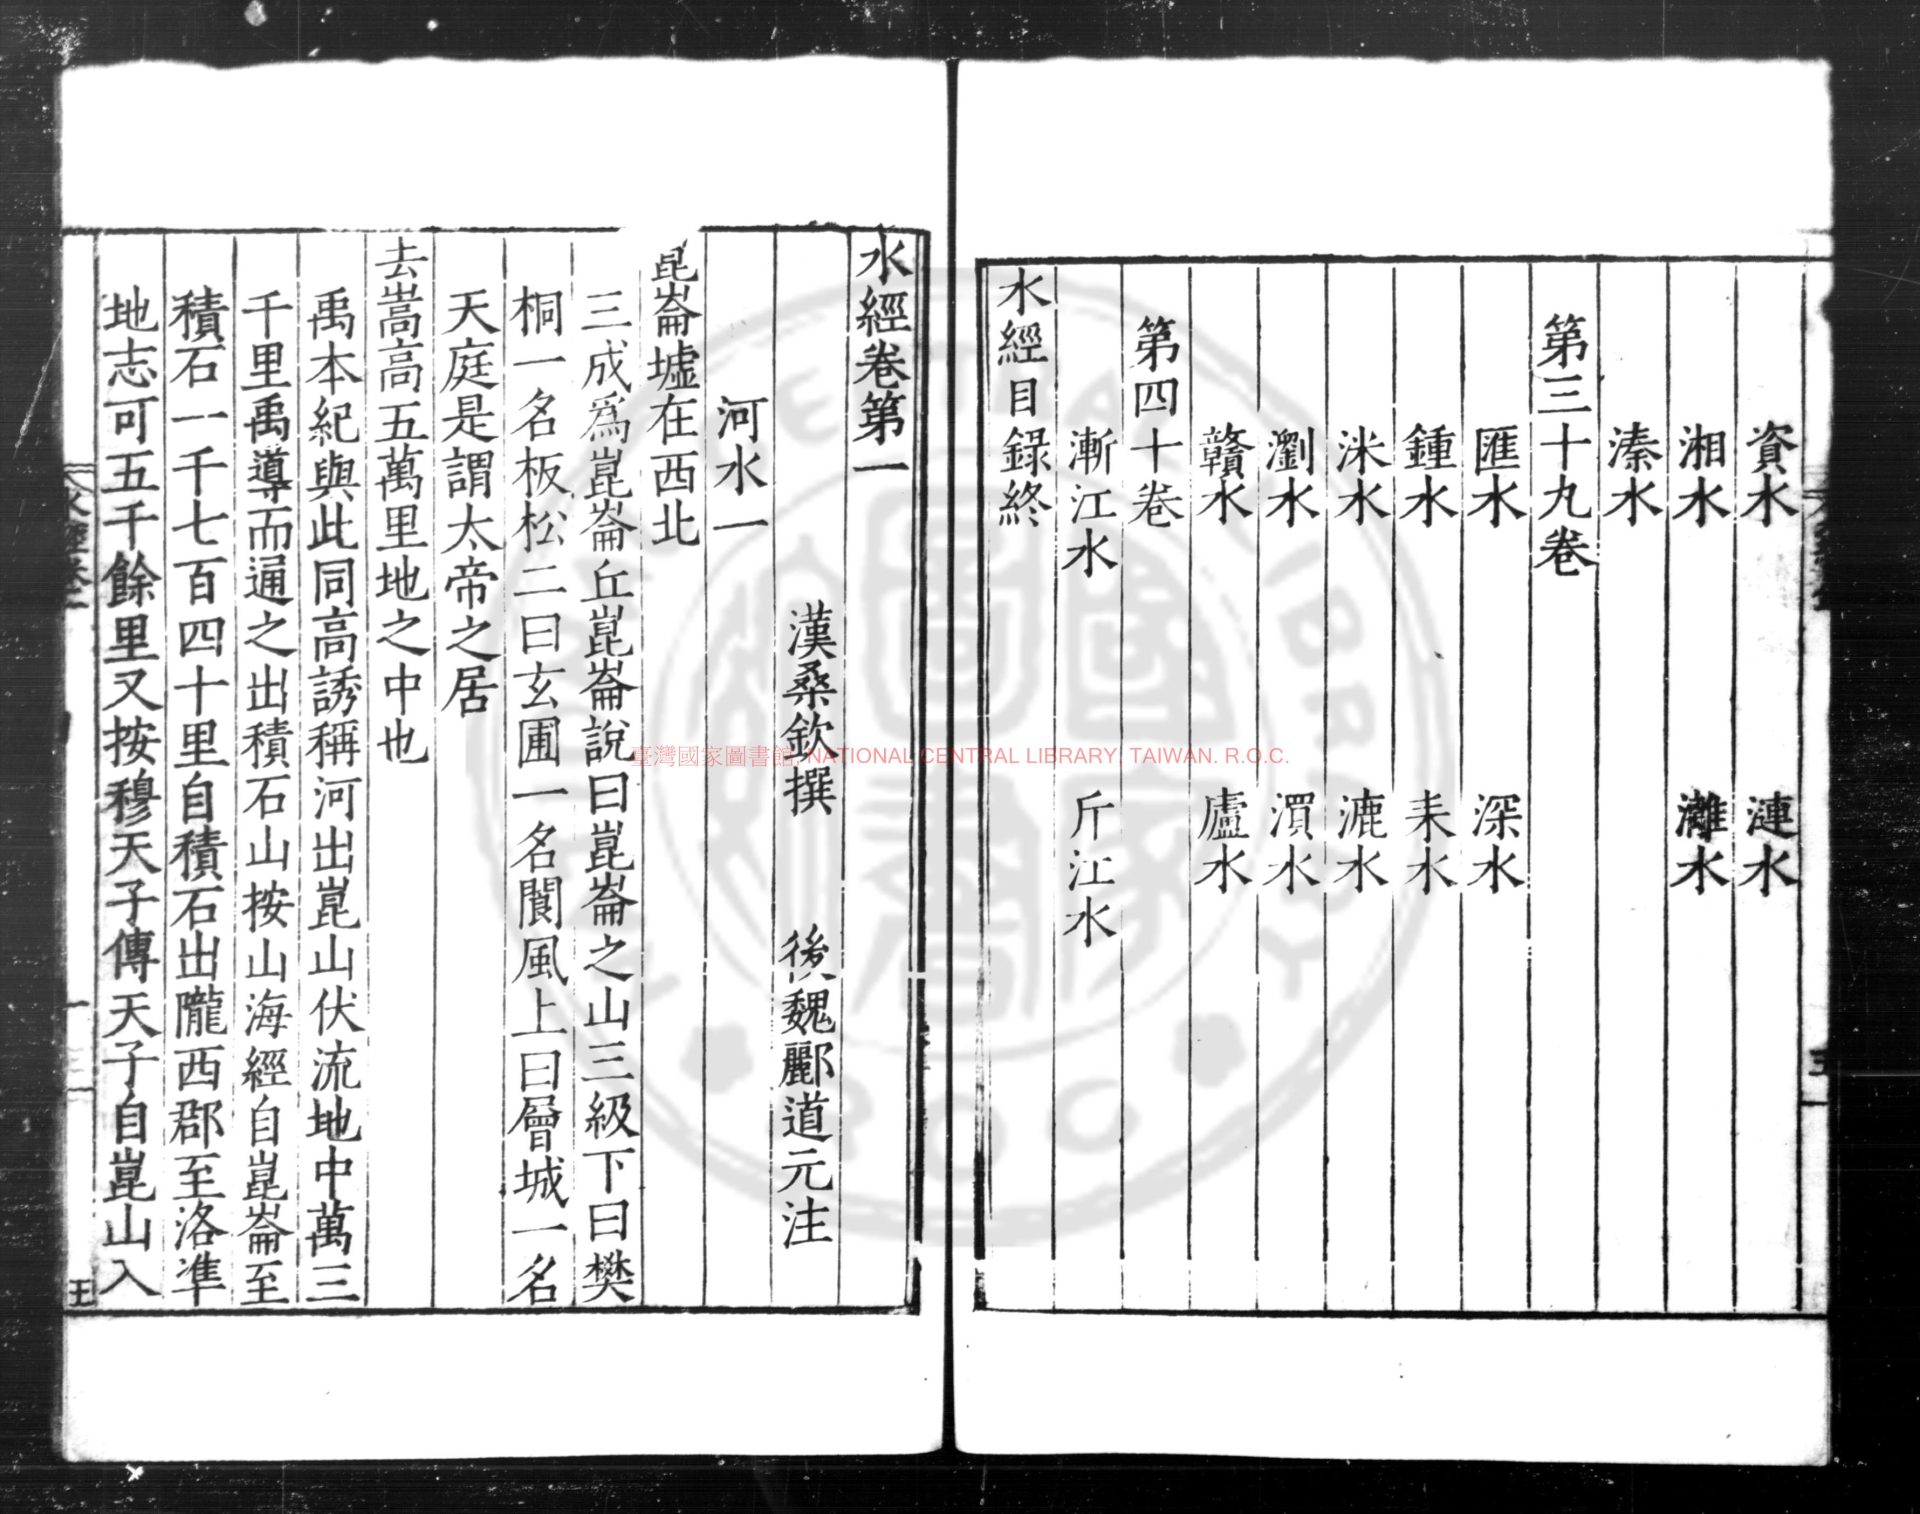 資水　漣水
湘水　灕水
溱水
第三十九卷
匯水　深水
鍾水　耒水
洣水　漉水
瀏水　潣水
贛水　廬水
第四十卷
漸江水　斤江水
水經目錄終
水經卷第一
漢桑欽撰　後魏酈道元注
河水一
崑崙墟在西北
三成爲崑崙丘崑崙說曰崑崙之山三級下曰樊
桐一名板松二曰玄圃一名閬風上曰層城一名
天庭是謂太帝之居
去嵩高五萬里地之中也
禹本紀與此同高誘稱河出崑山伏流地中萬三
千里禹導而通之出積石山按山海經自崑崙至
積石一千七百四十里自積石出隴西郡至洛準
地志可五千餘里又按穆天子傳天子自崑山入
水經卷一
一
王
臺灣國家圖書館, NATIONAL CENTRAL LIBRARY, TAIWAN. R.O.C.